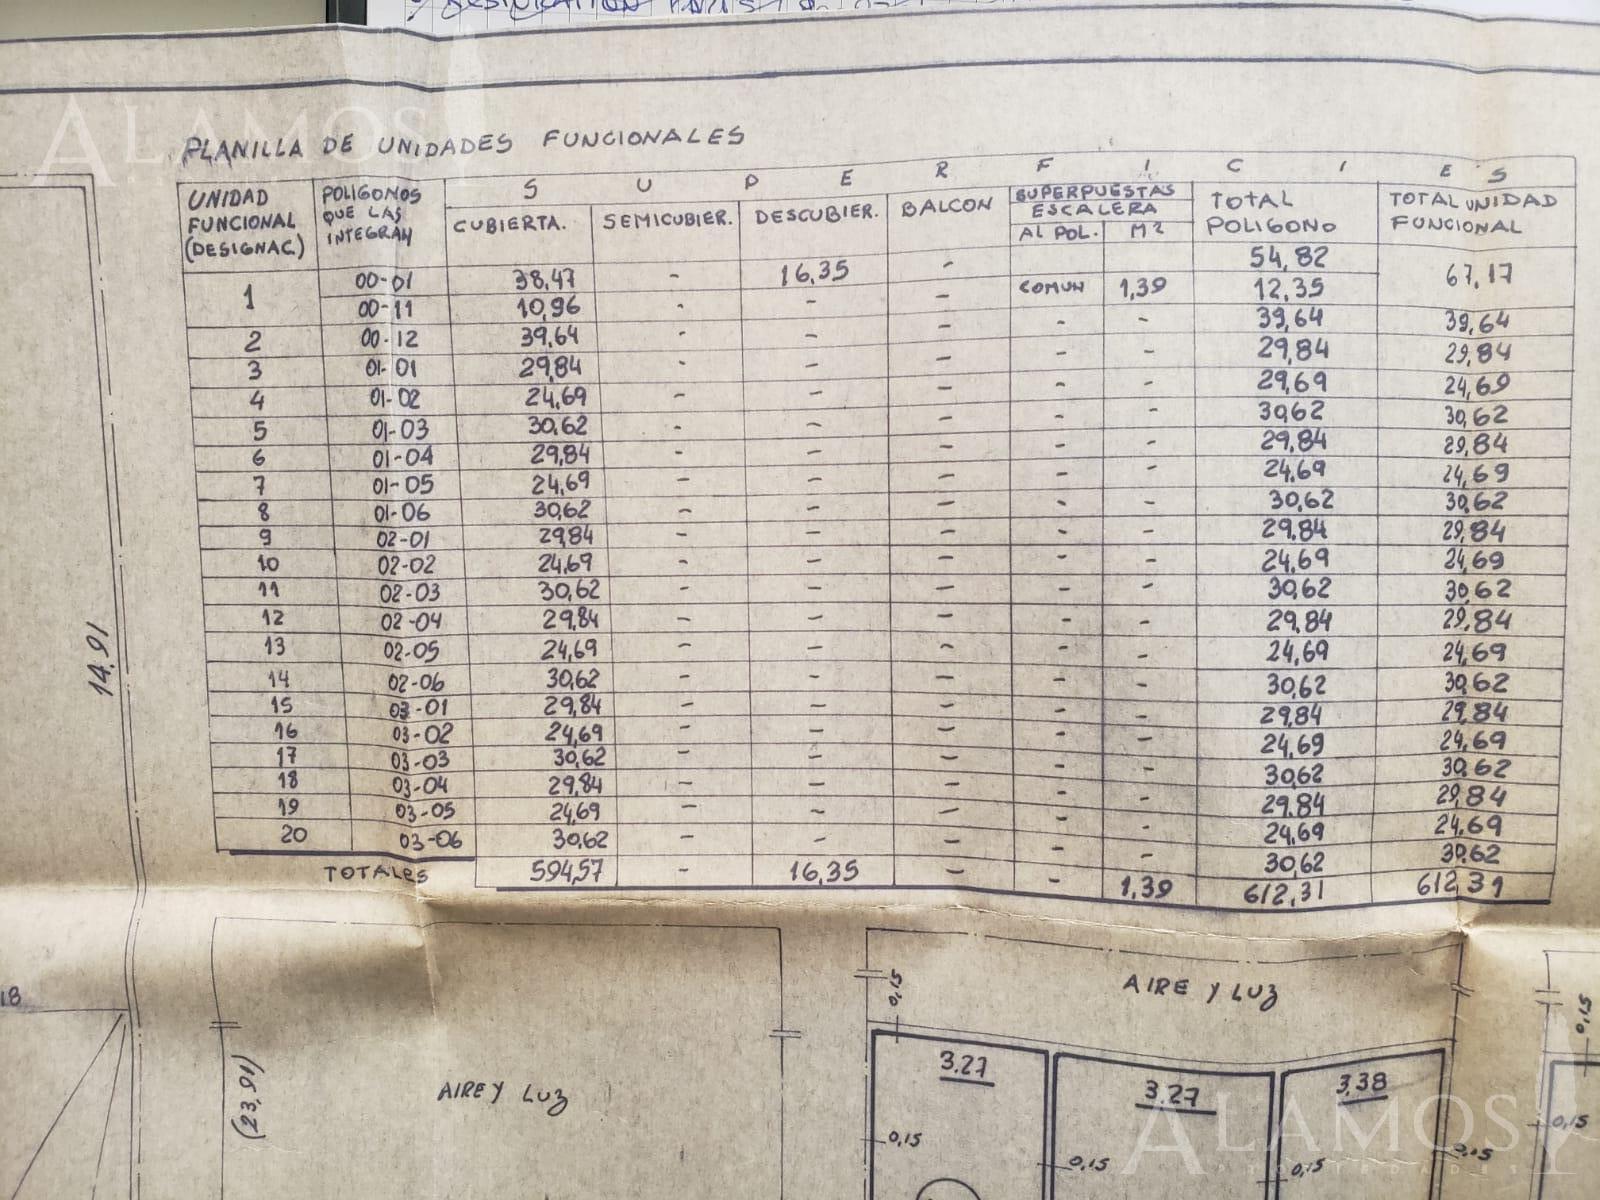 ALAMOS
PLANILLA DE UNIDADES FUNCIONALES
UNIDAD FUNCIONAL (DESIGNAC.) POLIGONOS QUE LAS INTEGRAN S U P E R F I C I E S
CUBIERTA. SEMICUBIER. DESCUBIER. BALCON SUPERPUESTAS ESCALERA AL POL. M2 TOTAL POLIGONO TOTAL UNIDAD FUNCIONAL
1 00-01 38,47 - 16,35 - 54,82 67,17
00-11 10,96 - - - COMUN 1,39 12,35
2 00-12 39,64 - - - - - 39,64 39,64
3 01-01 29,84 - - - - - 29,84 29,84
4 01-02 24,69 - - - - - 29,69 24,69
5 01-03 30,62 - - - - - 30,62 30,62
6 01-04 29,84 - - - - - 29,84 29,84
7 01-05 24,69 - - - - - 24,69 24,69
8 01-06 30,62 - - - - - 30,62 30,62
9 02-01 29,84 - - - - - 29,84 29,84
10 02-02 24,69 - - - - - 24,69 24,69
11 02-03 30,62 - - - - - 30,62 30,62
12 02-04 29,84 - - - - - 29,84 29,84
13 02-05 24,69 - - - - - 24,69 24,69
14 02-06 30,62 - - - - - 30,62 30,62
15 03-01 29,84 - - - - - 29,84 29,84
16 03-02 24,69 - - - - - 24,69 24,69
17 03-03 30,62 - - - - - 30,62 30,62
18 03-04 29,84 - - - - - 29,84 29,84
19 03-05 24,69 - - - - - 24,69 24,69
20 03-06 30,62 - - - - - 30,62 30,62
TOTALES 594,57 - 16,35 - - 1,39 612,31 612,31
14,91
18
(23,91)
AIRE Y LUZ
AIRE Y LUZ
0,15
0,15
3.27
3.27
3,38
0,15
0,15
0,15
0,15
0,15
ALAMOS
PROPIEDADES